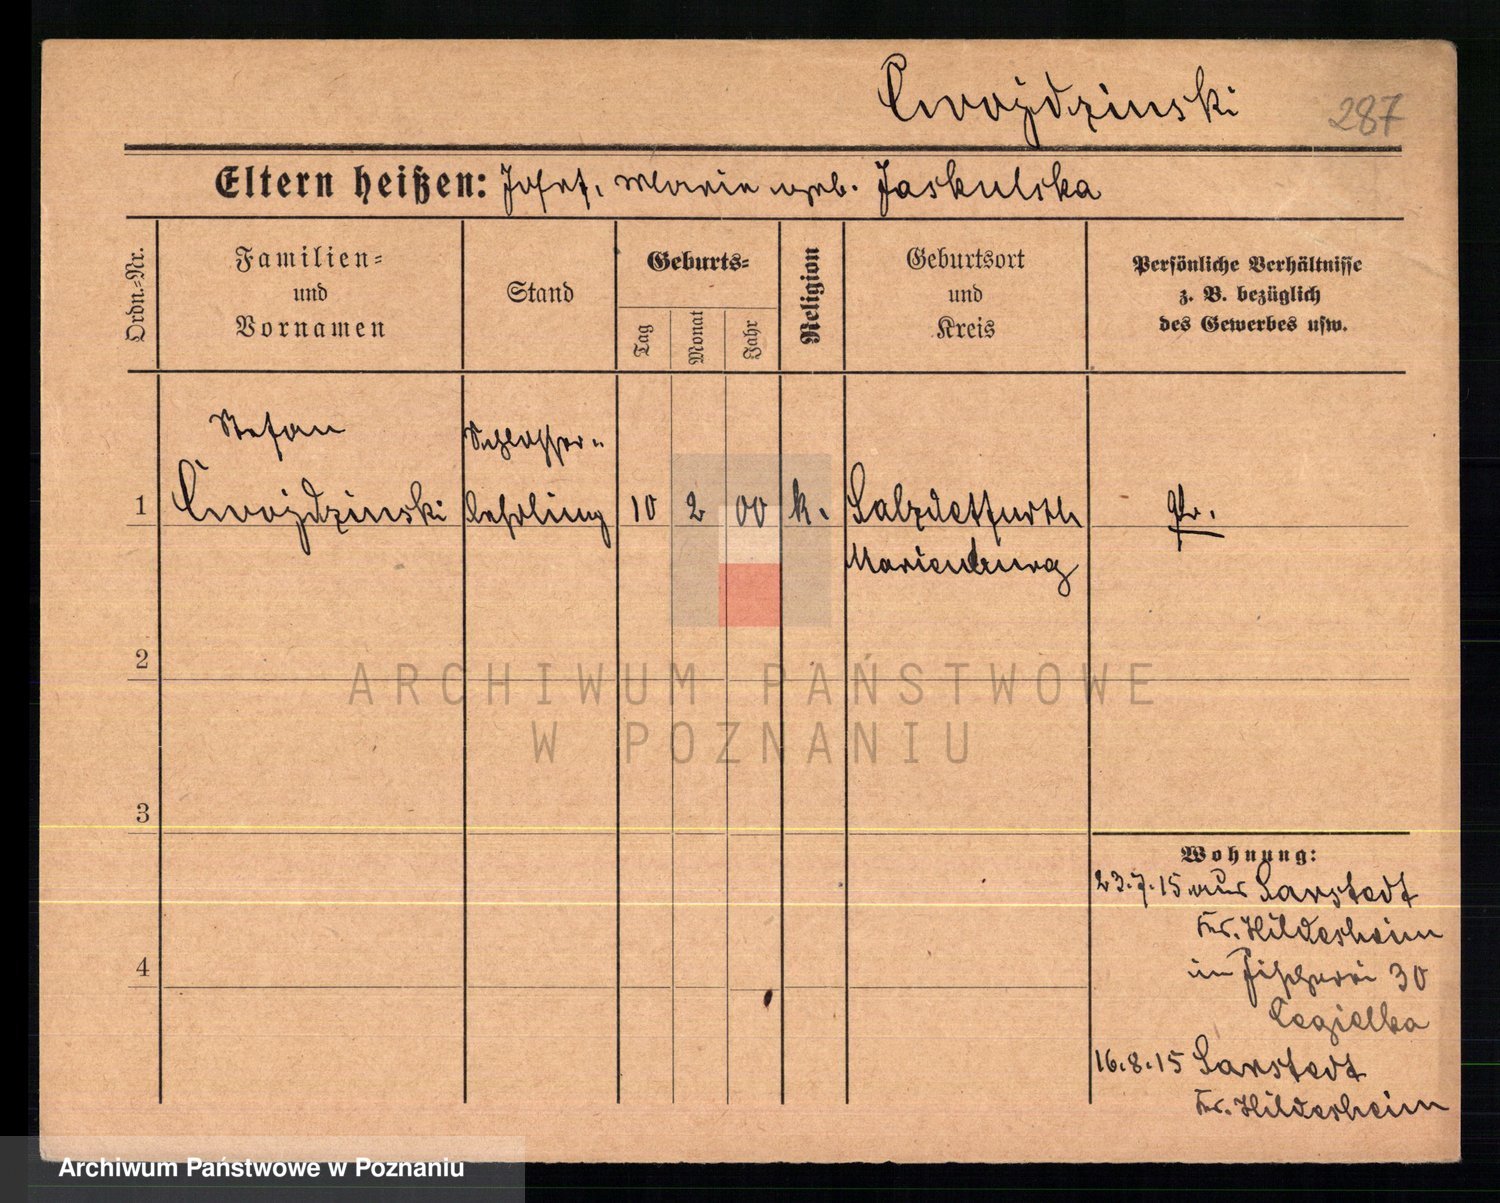 Cwojdzinski
287
Eltern heißen: Josef, Marie geb. Jaskulska
Ordn.-Nr.
Familien-
und
Vornamen
Stand
Geburts-
Tag
Monat
Jahr
Religion
Geburtsort
und
Kreis
Persönliche Verhältnisse
z. B. bezüglich
des Gewerbes usw.
Stefan
Schlosser-
1 Cwojdzinski lehrling 10 2 00 k. Salzdetfurth Pr.
Marienburg
2
ARCHIWUM PAŃSTWOWE
W POZNANIU
3
Wohnung:
23.7.15 aus Sarstedt
Kr. Hildesheim
in Fischerei 30
Cegielka
4
16.8.15 Sarstedt
Kr. Hildesheim
Archiwum Państwowe w Poznaniu